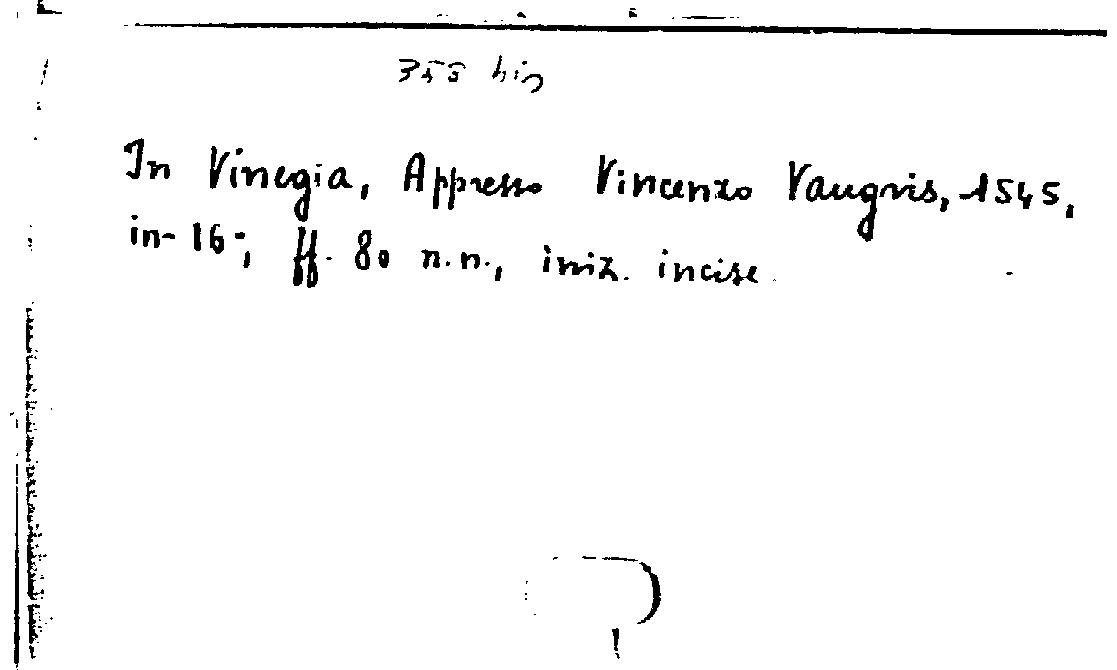 In Vinegia, Appresso Vincenzo Vaugris, 1545,
in-16°, ff. 80 n.n., iniz. incise